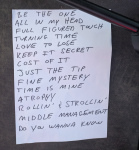 BE THE ONE
ALL IN MY HEAD
FULL FIGURED
TURNING TIME
LOVE TO LOSE
KEEP IT SECRET
COST OF IT
JUST THE TIP
FINE MYSTERY
TIME IS MINE
ATROPHY
ROLLIN' & STROLLIN'
MIDDLE MANAGEMENT
DO YOU WANNA KNOW